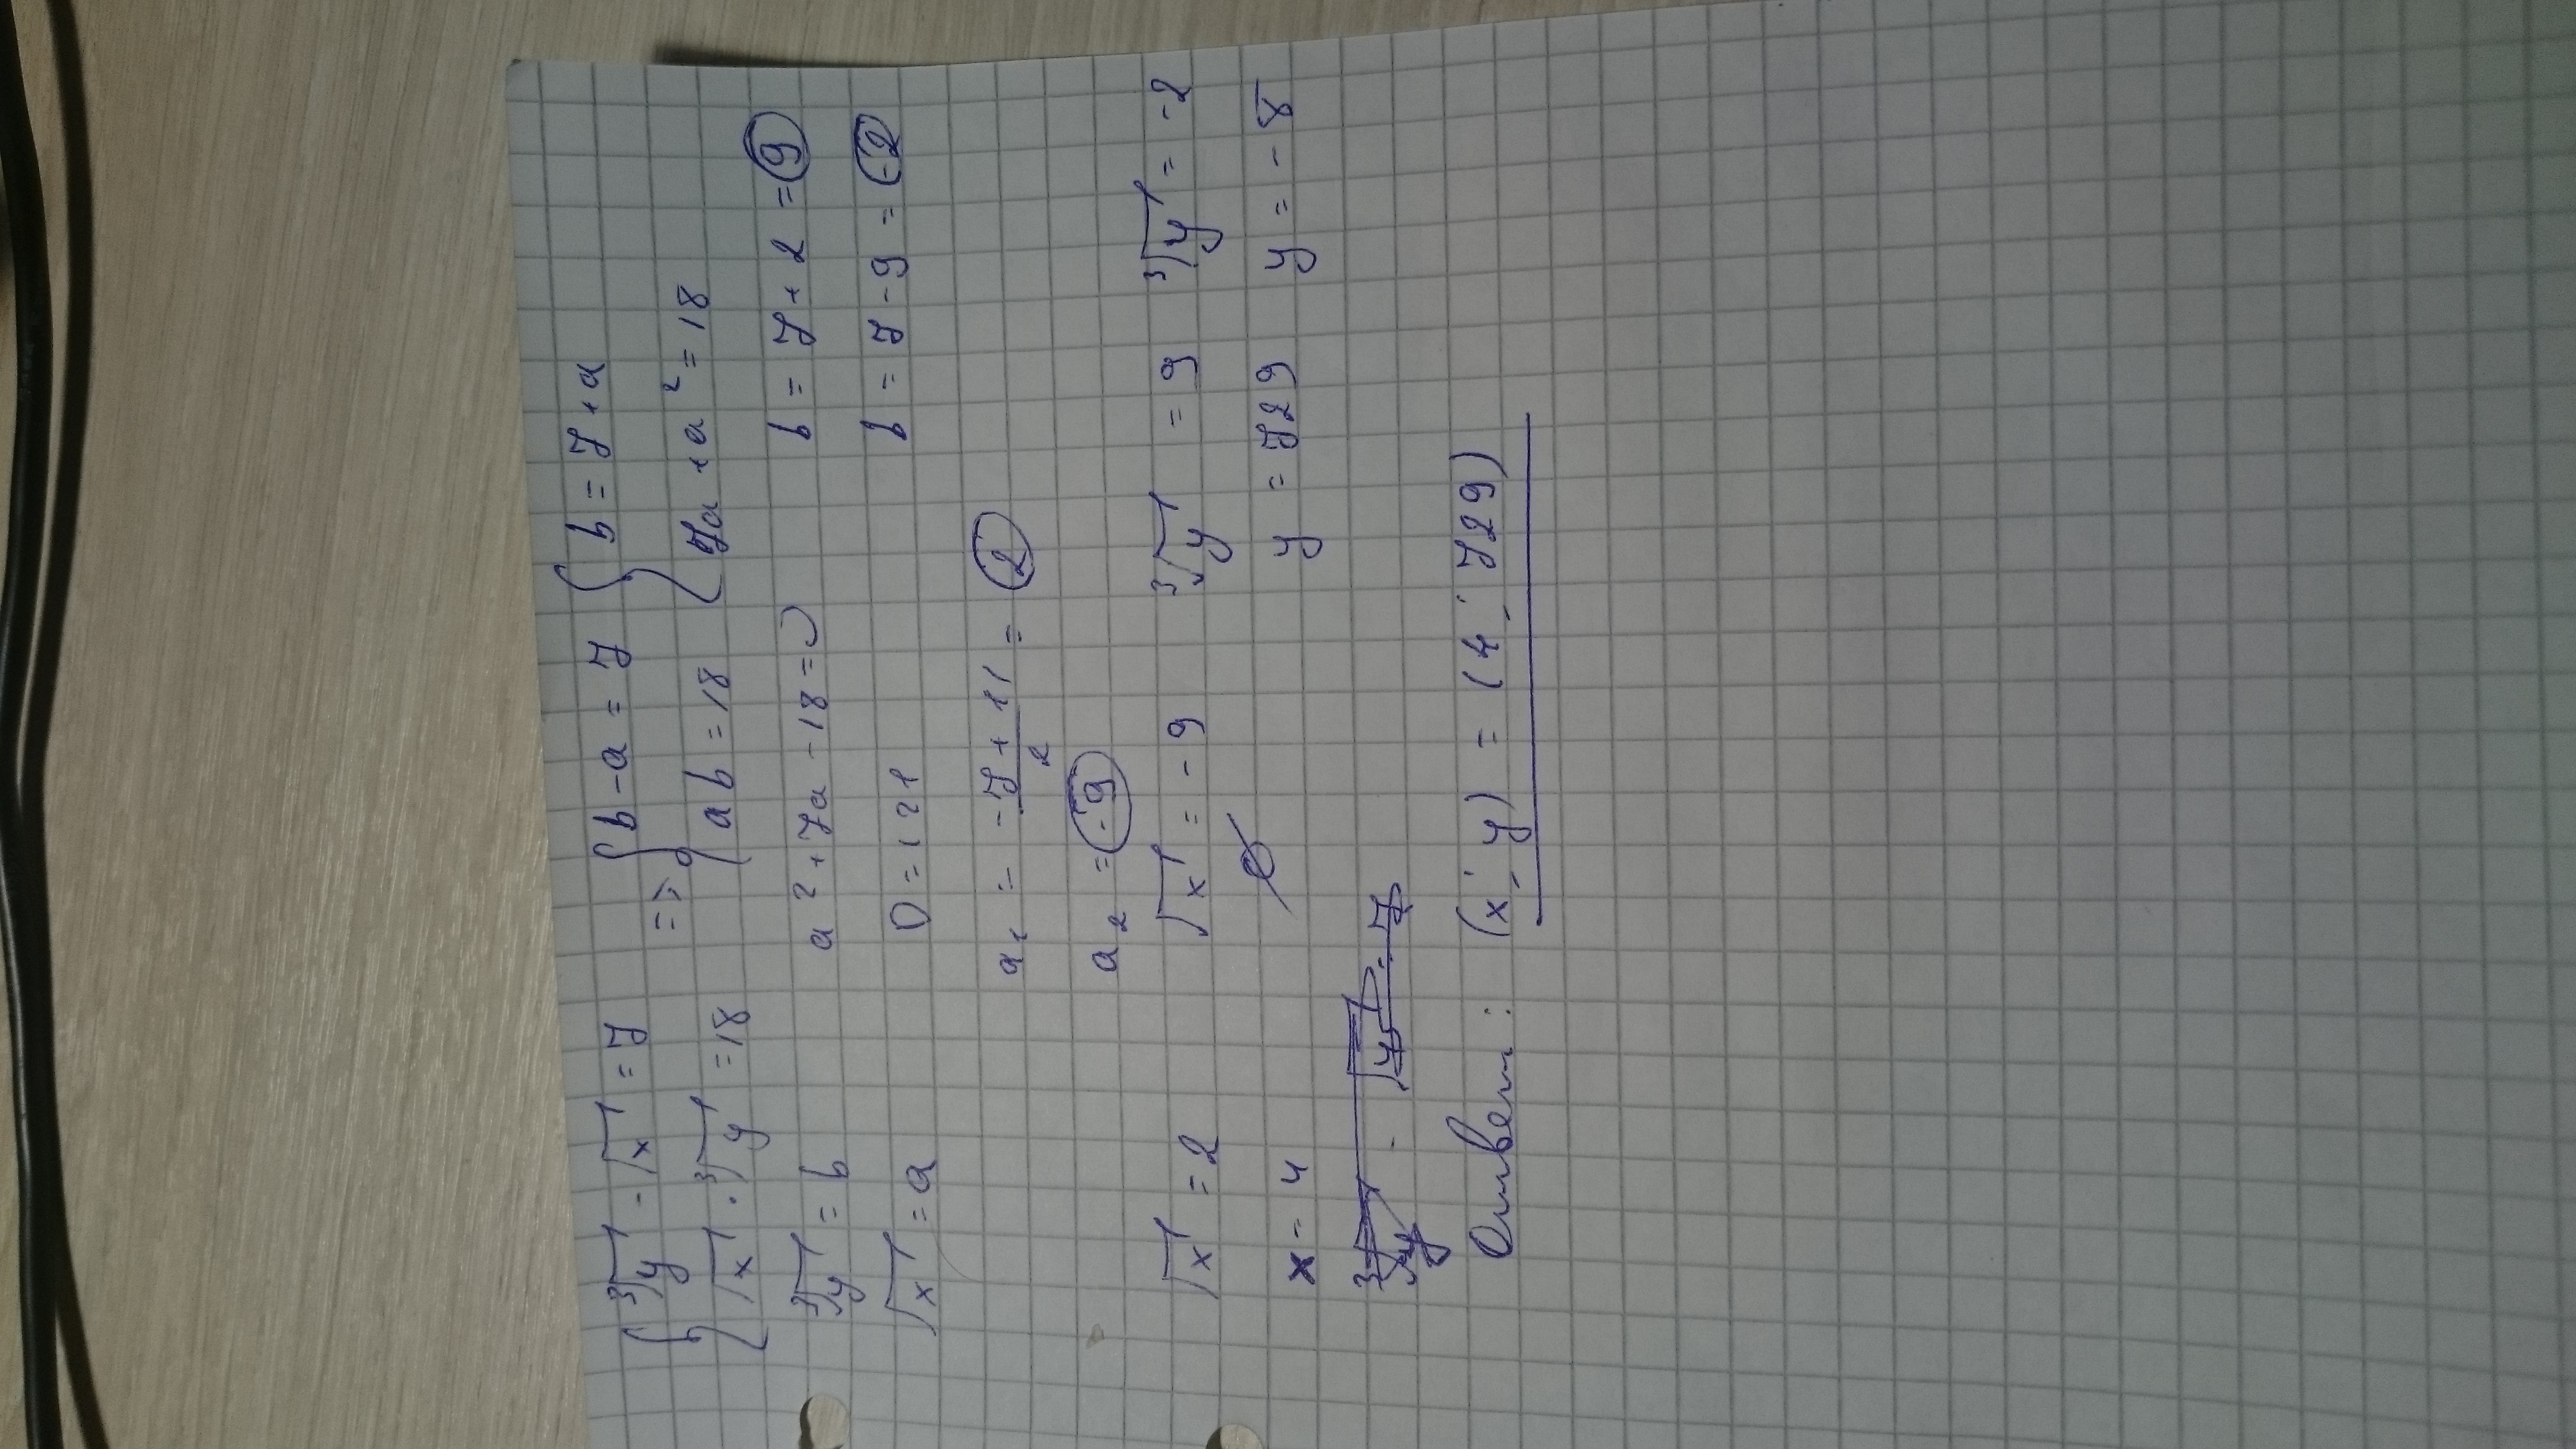 { ∛y - √x = 7 => { b - a = 7 { b = 7 + a
{ √x · ∛y = 18 { ab = 18 { 7a + a² = 18
∛y = b a² + 7a - 18 = 0 b = 7 + 2 = 9
√x = a D = 121 b = 7 - 9 = -2
a₁ = (-7 + 11)/2 = 2
a₂ = -9
√x = 2 √x = -9 ∛y = 9 ∛y = -2
x = 4 ∅ y = 729 y = -8
Ответ: (x; y) = (4; 729)